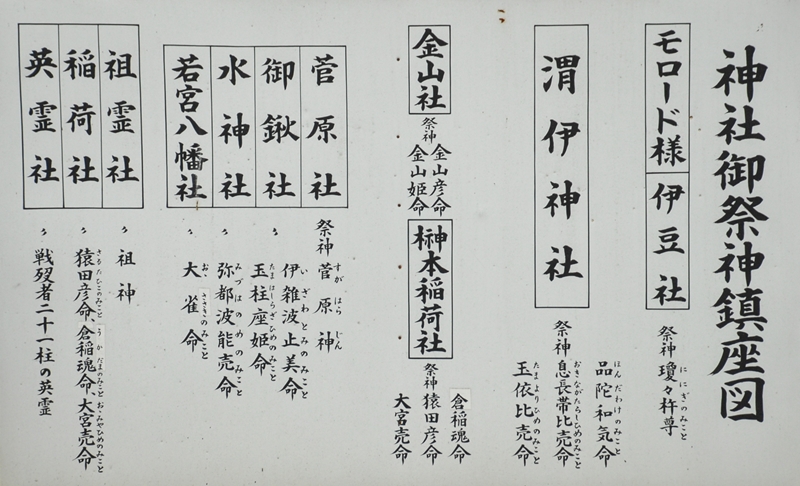 神社御祭神鎮座図
モロード様
伊豆社
祭神 瓊々杵尊
ににぎのみこと
渭伊神社
品陀和気命
ほんだわけのみこと
祭神 息長帯比売命
おきながたらしひめのみこと
玉依比売命
たまよりひめのみこと
金山社
祭神 金山彦命
金山姫命
榊本稲荷社
倉稲魂命
祭神 猿田彦命
大宮売命
菅原社
祭神 菅原神
すがはらじん
御鍬社
伊雑波止美命
いざわとみのみこと
玉柱座姫命
たまはしらざひめのみこと
水神社
〃 弥都波能売命
みづはのめのみこと
若宮八幡社
〃 大雀命
おおささきのみこと
祖霊社
〃 祖神
稲荷社
〃 猿田彦命、倉稲魂命、大宮売命
さるたひこのみこと うかだまのみこと おおみやひめのみこと
英霊社
〃 戦歿者二十一柱の英霊